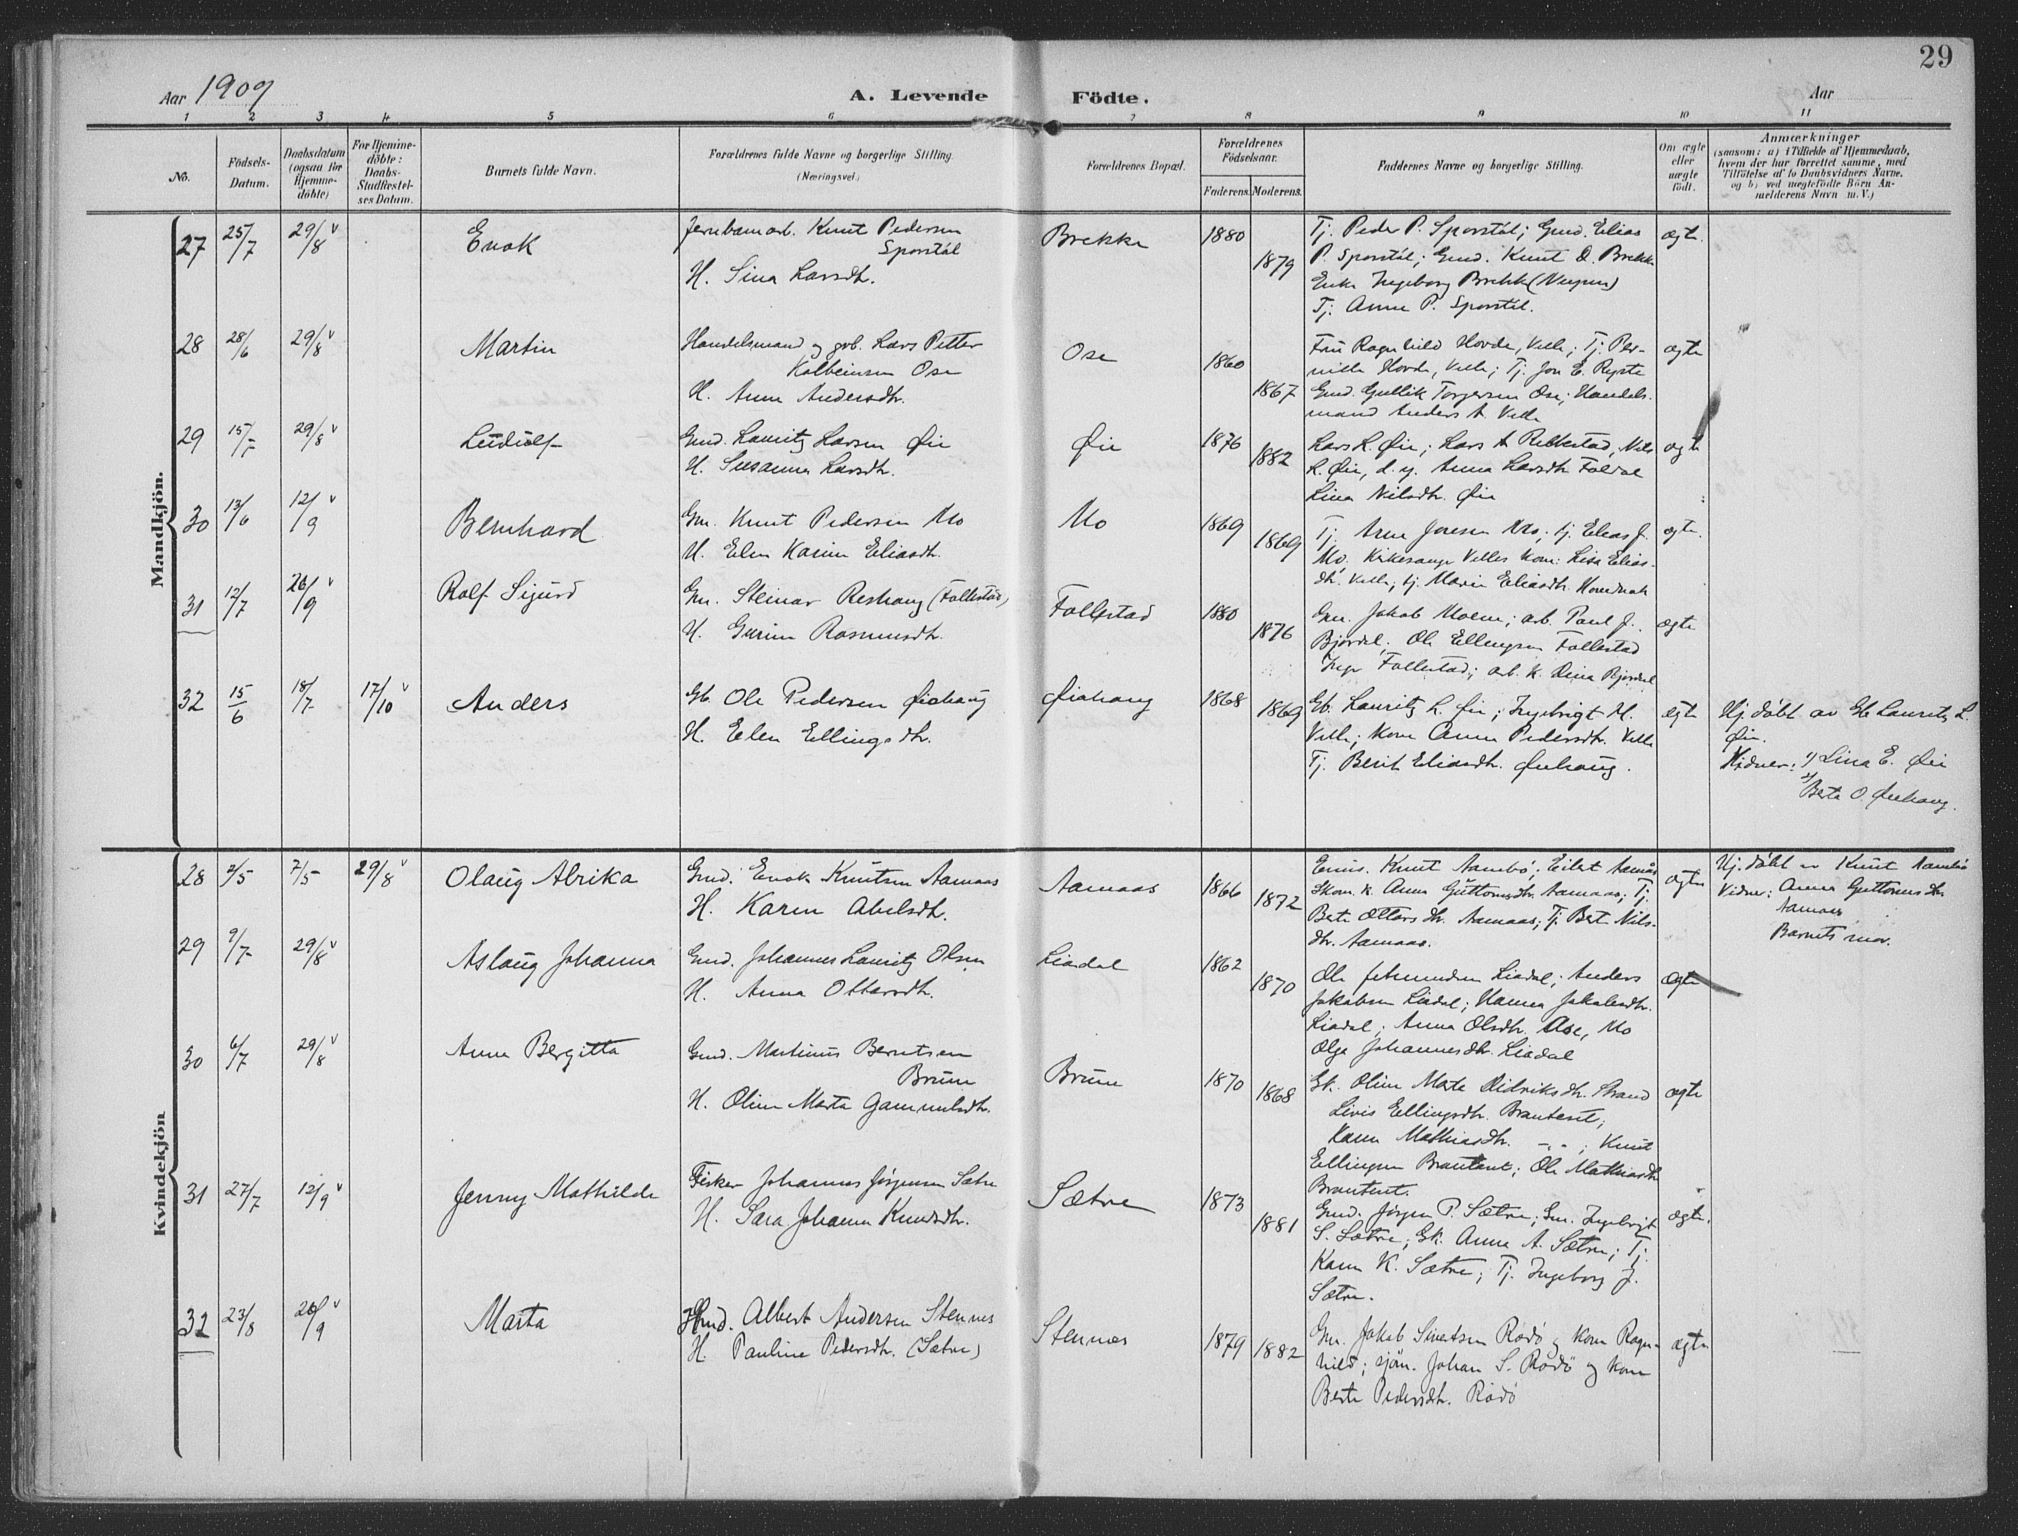 29
Aar 1909
A. Levende Födte.
Aar
1 2 3 4 5 6 7 8 9 10 11
No.
Födsels-
Datum.
Daabsdatum
(ogsaa for
Hjemme-
döbte)
For Hjemme-
döbte:
Daabs-
Stadfæstel-
ses Datum.
Barnets fulde Navn.
Forældrenes fulde Navne og borgerlige Stilling.
(Næringsvei.)
Forældrenes Bopæl.
Forældrenes
Födselsaar.
Faderens. Moderens.
Faddernes Navne og borgerlige Stilling.
Om ægte
eller
uægte
födt.
Anmærkninger
(saasom: a) i Tilfælde af Hjemmedaab,
hvem der har forrettet samme, med
Tilföielse af to Daabsvidners Navne,
og b) ved uægtefödte Börn An-
mælderens Navn m. V.)
Mandkjön.
27 25/7 29/8 Enok
Jernbanearb. Knut Pedersen
Sporstøl
H. Sina Larsdt.
Brekke 1880 1879
Tj. Peder P. Sporstøl; Gmd. Elias
P. Sporstøl; Gmd. Knut O. Brekk
Enke Ingeborg Brekk
Tj. Anne P. Sporstøl.
ægte.
28 28/6 29/8 Martin
Handelsmand og grb. Lars Petter
Kolbeinsen Ose
H. Anne Andersdtr.
Ose 1860 1867
Fru Ragnhild Hovde, Velle; Tj. Per-
nille Hovde, Velle; Tj. Jon E. Ryste
Gmd. Gullik Torgersen Ose; Handels-
mand Anders A. Velle
ægte
29 15/7 29/8 Ludulf
Gmd. Lauritz Larsen Øie
H. Susanna Larsdtr.
Øie 1876 1882
Lars L. Øie; Lars A Rebbestad, Nils
L. Øie, d. y. Anna Larsdtr Foldal
Lina Nilsdtr. Øie
ægte
30 13/6 12/9 Bernhard
Gm. Knut Pedersen Mo
H. Elen Karine Eliasdt.
Mo 1869 1869
Tj. Arne Jonsen Mo; tj. Elias J.
Mo, Kirkesanger Velles Kone: Lisa Elias-
dt. Velle; tj. Marie Eliasdtr.
ægte.
31 12/7 26/9 Rolf Sigurd
Gm. Steinar Reshaug (Follestad)
H. Gurine Rasmusdtr.
Follestad 1880 1876
Gm. Jakob Moene; arb. Paul J.
Bjørdal. Ole Ellingsen Follestad
Inge Follestad; arb. k. Lina Bjørdal
ægte
32 15/6 18/7 17/10 Anders
Gb. Ole Pedersen Øiehaug
H. Elen Ellingsdtr.
Øiehaug 1868 1869
Gb. Lauritz L. Øie; Ingebrigt M.
Velle; Kone Anne Pedersdtr. Velle
Tj. Berit Eliasdtr. Øiehaug.
ægte
Hj. døbt av Gb Lauritz L.
Øie.
Vidner: 1/ Lina E. Øie
2/ Berte O. Øiehaug.
Kvindekjön
28 2/5 7/5 29/8 Olaug Alrika
Gmd. Enok Knutsen Aamaas
H. Karen Abelsdtr.
Aamaas 1866 1872
Enkm. Knut Aambø; Eilert Aamås
Skom. k. Anna Guttormsdtr. Aamaas; Tj.
Berte Ottarsdtr. Aamaas; Tj. Berte Nils-
dtr. Aamaas.
ægte
Hj. døbt av Knut Aambø
Vidner: Anna Guttormsdtr.
Aamaas
Barnets mor.
29 9/7 29/8 Aslaug Johanna
Gmd. Johannes Lauritz Olsen
H. Anna Ottarsdtr.
Liadal 1862 1870
Ole Jetmundsen Liadal; Anders
Jakobsen Liadal; Hanna Jakobsdtr.
Liadal; Anna Olsdtr. Ose, Mo
Olga Johannesdtr. Liadal
ægte
30 6/7 29/8 Anne Bergitta
Gmd. Martinus Berntsen
Brune
H. Oline Marta Gammelsdtr.
Brune 1870 1868
Gk. Oline Marte Didriksdtr. Strand
Livis Ellingsdtr. Brauteset;
Karen Mathiasdtr. -„- ; Knut
Ellingsen Brauteset; Ole Mathiasdtr
Brauteset.
ægte
31 27/7 12/9 Jenny Mathilde
Fisker Johannes Jørgensen Sætre
H. Sara Johanne Knudsdtr.
Sætre 1873 1881
Gmd. Jørgen P. Sætre; Gm. Ingebrigt
S. Sætre; Gk. Anna A. Sætre; Tj.
Karen K. Sætre; Tj. Ingeborg J.
Sætre.
ægte.
32 23/8 26/9 Marta
Gmd. Albert Andersen Stennes
H. Pauline Pedersdtr. (Sætre)
Stennæs 1879 1882
Gm. Jakob Sivertsen Rødø og kone Ragn-
hild; sjöm. Johan S. Rødø og kone
Berte Pedersdtr. Rødø
ægte